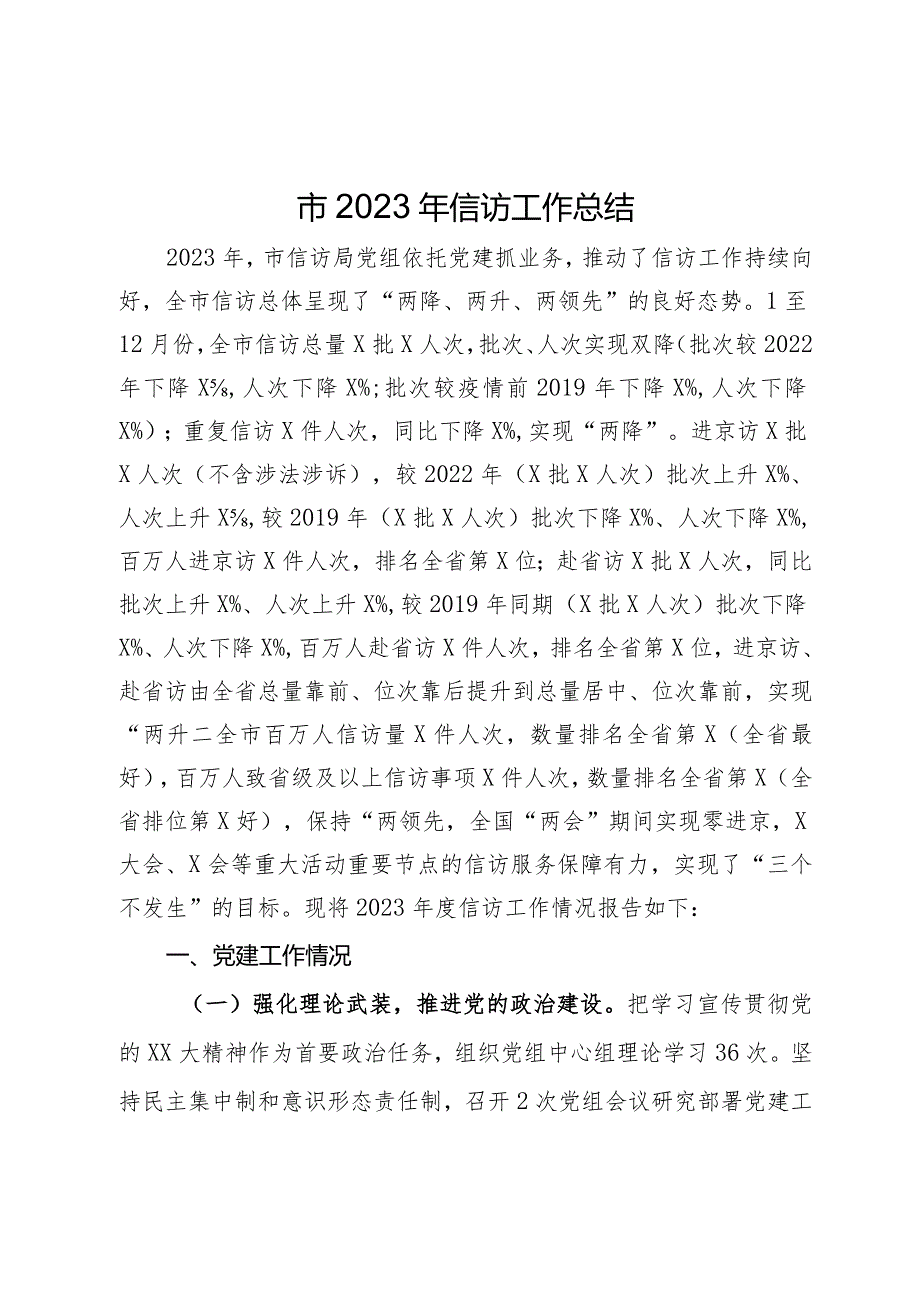 市 2023 年信访工作总结
2023 年，市信访局党组依托党建抓业务，推动了信访工作持续向
好，全市信访总体呈现了“两降、两升、两领先”的良好态势。1 至
12 月份，全市信访总量 X 批 X 人次，批次、人次实现双降（批次较 2022
年下降 X⅝，人次下降 X%;批次较疫情前 2019 年下降 X%,人次下降
X%）；重复信访 X 件人次，同比下降 X%,实现“两降”。进京访 X 批
X 人次（不含涉法涉诉），较 2022 年（X 批 X 人次）批次上升 X%、
人次上升 X⅝,较 2019 年（X 批 X 人次）批次下降 X%、人次下降 X%,
百万人进京访 X 件人次，排名全省第 X 位；赴省访 X 批 X 人次，同比
批次上升 X%、人次上升 X%,较 2019 年同期（X 批 X 人次）批次下降
X%、人次下降 X%,百万人赴省访 X 件人次，排名全省第 X 位，进京访、
赴省访由全省总量靠前、位次靠后提升到总量居中、位次靠前，实现
“两升二全市百万人信访量 X 件人次，数量排名全省第 X（全省最
好），百万人致省级及以上信访事项 X 件人次，数量排名全省第 X（全
省排位第 X 好），保持“两领先，全国“两会”期间实现零进京，X
大会、X 会等重大活动重要节点的信访服务保障有力，实现了“三个
不发生”的目标。现将 2023 年度信访工作情况报告如下：
一、党建工作情况
（一）强化理论武装，推进党的政治建设。把学习宣传贯彻党
的 XX 大精神作为首要政治任务，组织党组中心组理论学习 36 次。坚
持民主集中制和意识形态责任制，召开 2 次党组会议研究部署党建工